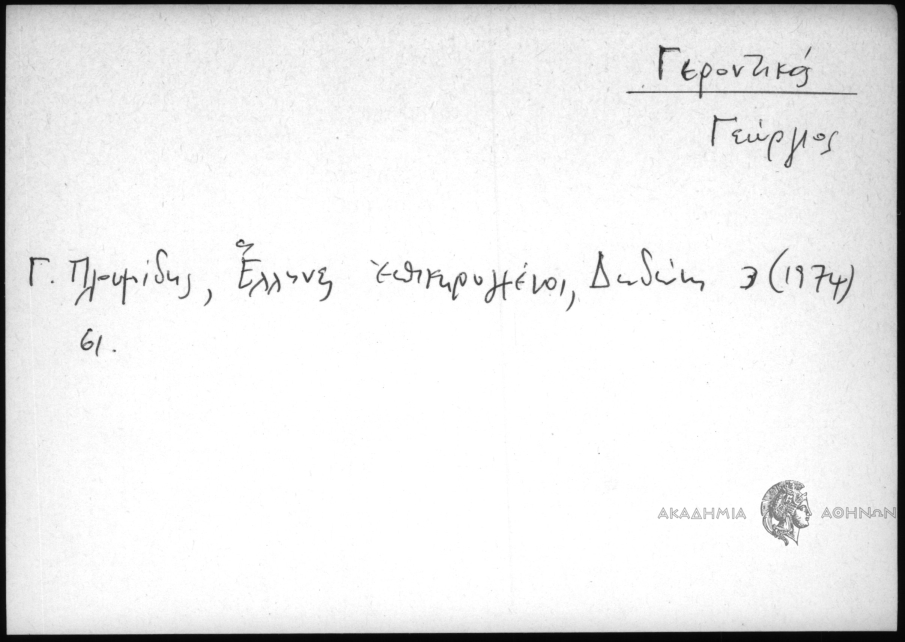 Γεροντικός
Γεώργιος
Γ. Πλουμίδης, Ἕλληνες ἐπικηρυγμένοι, Δωδώνη 3 (1974)
61.
ΑΚΑΔΗΜΙΑ ΑΘΗΝΩΝ